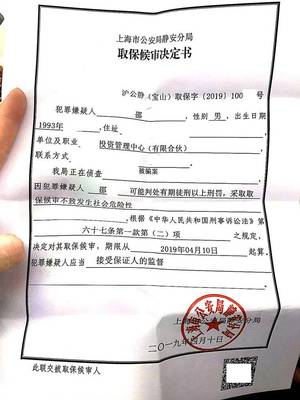 上海市公安局静安分局
取保候审决定书
沪公静（宝山）取保字〔2019〕100 号
犯罪嫌疑人 邵 ，性别 男 ，出生日期
1993年 ，住址
单位及职业 投资管理中心（有限合伙）
联系方式 。
我局正在侦查 被骗案
因犯罪嫌疑人 邵 可能判处有期徒刑以上刑罚，采取取
保候审不致发生社会危险性
，根据《中华人民共和国刑事诉讼法》第
六十七条第一款第（二）项 之规定，
决定对其取保候审，期限从 2019年04月10日 起算。
犯罪嫌疑人应当 接受保证人的监督
上海市公安局静安分局
二〇一九年四月十日
此联交被取保候审人